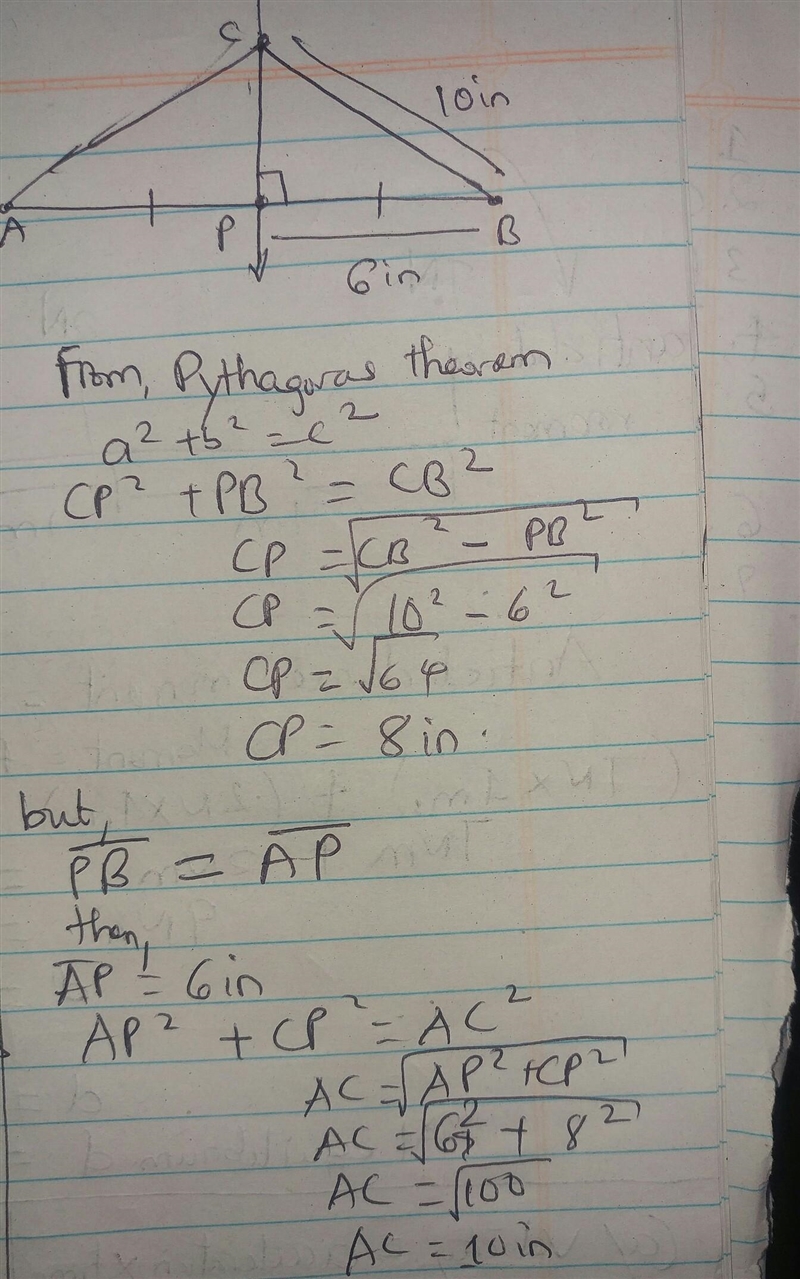 C
10in
A
P
B
6in
From, Pythagoras theorem
a² + b² = c²
CP² + PB² = CB²
CP = √CB² − PB²
CP = √10² − 6²
CP = √64
CP = 8in.
but,
P̅B̅ = A̅P̅
then,
A̅P̅ = 6in
AP² + CP² = AC²
AC = √AP² + CP²
AC = √6² + 8²
AC = √100
AC = 10in